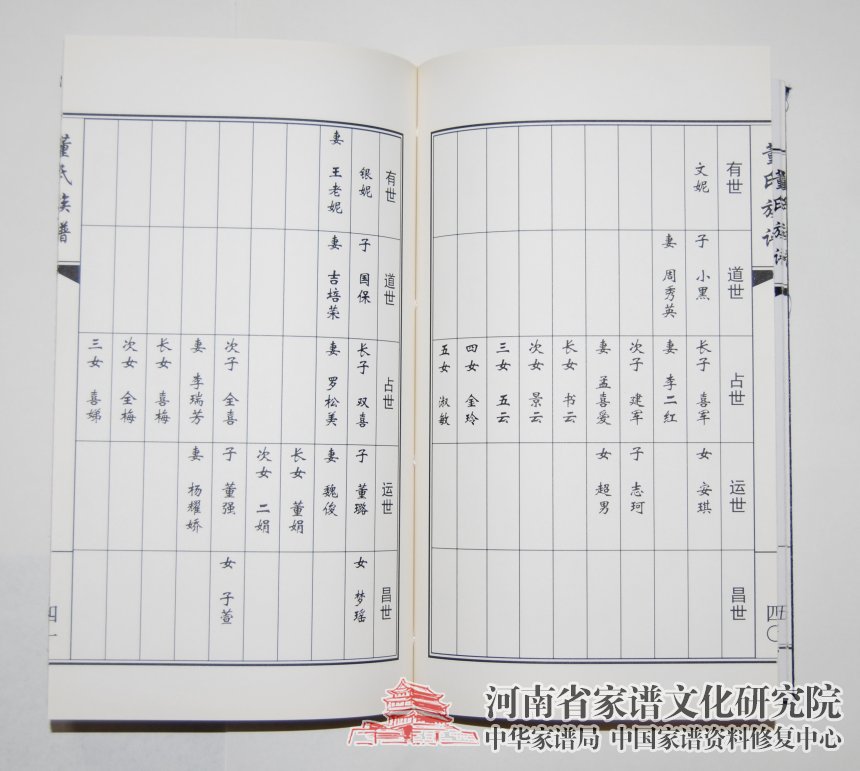 董氏族谱
四〇
有世
道世
占世
运世
昌世
文妮
子 小黑
长子 喜军
女 安琪
妻 周秀英
妻 李二红
次子 建军
子 志珂
妻 孟喜爱
女 超男
长女 书云
次女 景云
三女 五云
四女 金玲
五女 淑敏
有世
道世
占世
运世
昌世
银妮
子 国保
长子 双喜
子 董璐
女 梦瑶
妻 王老妮
妻 吉培荣
妻 罗松美
妻 魏俊
长女 董娟
次女 二娟
次子 全喜
子 董强
女 子萱
妻 李瑞芳
妻 杨耀娇
长女 喜梅
次女 全梅
三女 喜娣
董氏族谱
四一
河南省家谱文化研究院
中华家谱局 中国家谱资料修复中心